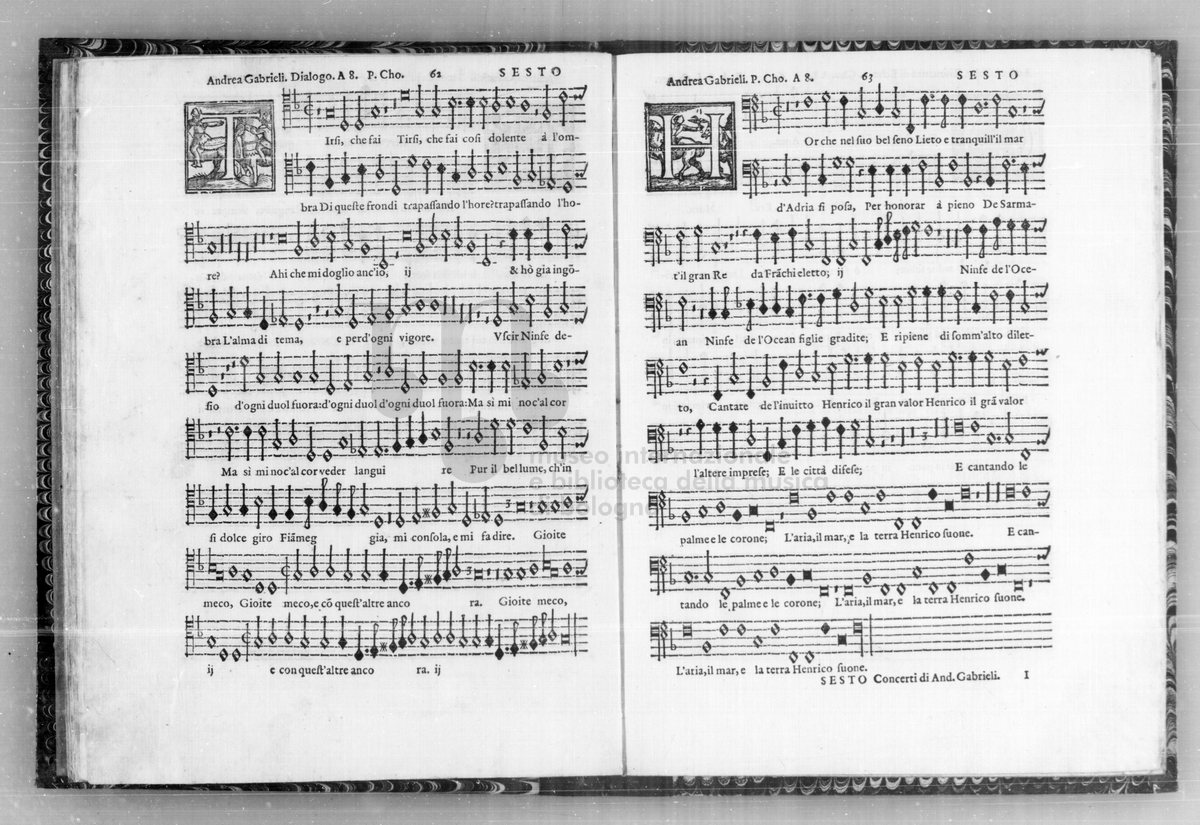 Andrea Gabrieli. Dialogo. A 8. P. Cho. 62 SESTO
T
Irsi, che fai Tirsi, che fai cosi dolente à l'om-
bra Di queste frondi trapassando l'hore? trapassando l'ho-
re? Ahi che mi doglio anc'io, ij & hò gia ingō-
bra L'alma di tema, e perd'ogni vigore. Vscir Ninfe de-
sio d'ogni duol fuora: d'ogni duol d'ogni duol fuora: Ma si mi noc'al cor
Ma si mi noc'al cor veder langui re Pur il bel lume, ch'in
si dolce giro Fiāmeg gia, mi consola, e mi fa dire. 3 Gioite
meco, Gioite meco, e cō quest'altre anco ra. 3 Gioite meco,
ij e con quest'altre anco ra. ij
Andrea Gabrieli. P. Cho. A 8. 63 SESTO
H
Or che nel suo bel seno Lieto e tranquill'il mar
d'Adria si posa, Per honorar à pieno De Sarma-
t'il gran Re da Frāchi eletto; ij Ninfe de l'Oce-
an Ninfe de l'Ocean figlie gradite; E ripiene di somm'alto dilet-
to, Cantate de l'inuitto Henrico il gran valor Henrico il grā valor
l'altere imprese; E le città difese; 3 E cantando le
palme e le corone; L'aria, il mar, e la terra Henrico suone. E can-
tando le palme e le corone; L'aria, il mar, e la terra Henrico suone.
L'aria, il mar, e la terra Henrico suone.
SESTO Concerti di And. Gabrieli. I
museo internazionale
e biblioteca della musica
di bologna